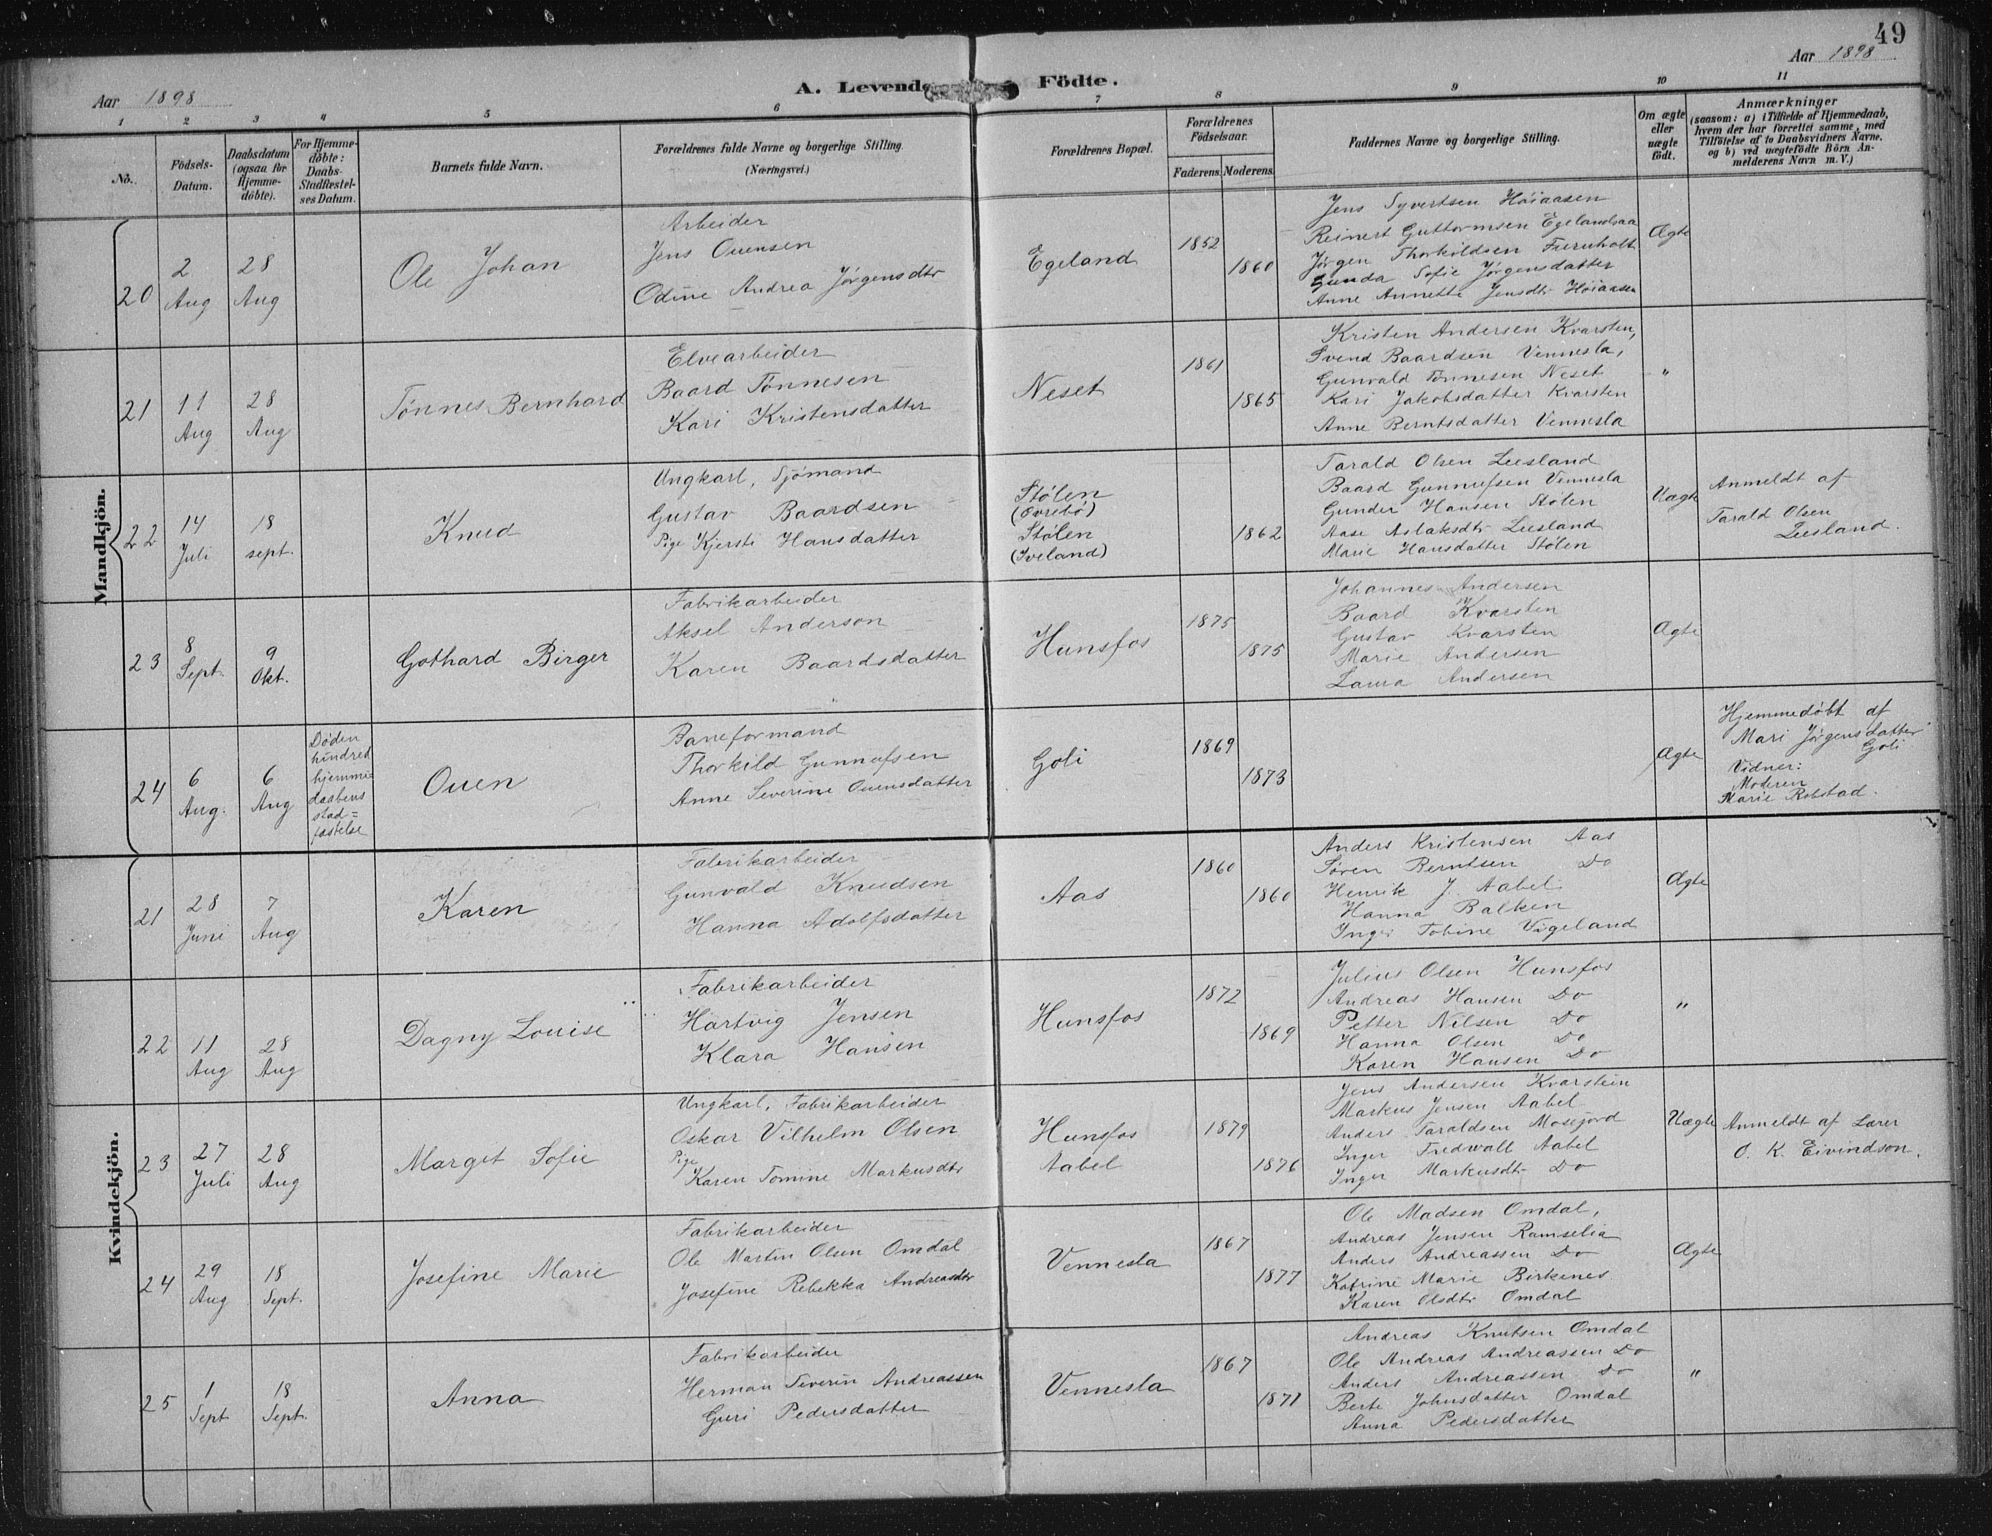 49
Aar 1898
A. Levende Födte.
Aar 1898
1 2 3 4 5 6 7 8 9 10 11
No.
Födsels-
Datum.
Daabsdatum
(ogsaa for
Hjemme-
døbte).
For Hjemme-
døbte:
Daabs-
Stadfæstel-
ses Datum.
Barnets fulde Navn.
Forældrenes fulde Navne og borgerlige Stilling.
(Næringsvei.)
Forældrenes Bopæl.
Forældrenes
Födselsaar.
Faderens. Moderens.
Faddernes Navne og borgerlige Stilling.
Om ægte
eller
uægte
født.
Anmærkninger
(saasom: a) i Tilfælde af Hjemmedaab,
hvem der har forrettet samme, med
Tilføielse af to Daabsvidners Navne,
og b) ved uægtefødte Börn An-
melderens Navn m. V.)
Mandkjön.
20
2
Aug
28
Aug
Ole Johan
Arbeider
Jens Ouensen
Odine Andrea Jørgensdtr
Egeland
1852
1860
Jens Syvertsen Høiaasen
Reinert Guttormsen Egelandsaa
Jørgen Thorkildsen Furuholt
Gunda Sofie Jørgensdatter
Anne Annette Jensdtr Høiaasen
Ægte
21
11
Aug
28
Aug
Tønnes Bernhard
Elvearbeider
Baard Tønnesen
Kari Kristensdatter
Neset
1861
1865
Kristen Andersen Kvarsten,
Svend Baardsen Vennesla,
Gunvald Tønnesen Neset
Kari Jakobsdatter Kvarsten
Anne Berntsdatter Vennesla
"
22
14
Juli
18
sept.
Knud
Ungkarl, Sjømand
Gustav Baardsen
Pige Kjersti Hansdatter
Stølen
(Øvrebø)
Stølen
(Iveland)
1862
Tarald Olsen Leesland
Baard Gunnufsen Vennesla
Gunder Hansen Stølen
Aase Aslaksdtr Leesland
Marie Hansdatter Stølen
Uægte
Anmeldt af
Tarald Olsen
Leesland.
23
8
Sept.
9
Okt.
Gothard Birger
Fabrikarbeider
Aksel Anderson
Karen Baardsdatter
Hunsfos
1875
1875
Johannes Andersen
Baard Kvarsten
Gustav Kvarsten
Marie Andersen
Laura Andersen
Ægte
24
6
Aug.
6
Aug
Døden
hindred
hjemme
daabens
stad=
fæstelse
Ouen
Baneformand
Thorkild Gunnufsen
Anne Severine Ouensdatter
Goli
1869
1873
Ægte
Hjemmedøbt af
Mari Jørgensdatter
Goli
Vidner:
Moderen
Marie Robstad.
Kvindekjön.
21
28
Juni
7
Aug
Karen
Fabrikarbeider
Gunvald Knudsen
Hanna Adolfsdatter
Aas
1860
1860
Anders Kristensen Aas
Søren Berntsen Do
Henrik J. Aabel
Hanna Balken
Inger Tobine Vigeland
Ægte
22
11
Aug
28
Aug
Dagny Louise
Fabrikarbeider
Hartvig Jensen
Klara Hansen
Hunsfos
1872
1869
Julius Olsen Hunsfos
Andreas Hansen Do
Petter Nilsen Do
Hanna Olsen Do
Karen Hansen Do
"
23
27
Juli
28
Aug
Margit Sofie
Ungkarl, Fabrikarbeider
Oskar Vilhelm Olsen
Pige
Karen Tomine Markusdtr
Hunsfos
Aabel
1879
1876
Jens Andersen Kvarstein
Markus Jensen Aabel
Anders Taraldsen Mosejord
Inger Fredwall Aabel
Inger Markusdtr Do
Uægte
Anmeldt af Lærer
O. K. Eivindson.
24
29
Aug
18
Sept.
Josefine Marie
Fabrikarbeider
Ole Martin Olsen Omdal
Josefine Rebekka Andreasdtr
Vennesla
1867
1877
Ole Madsen Omdal,
Andreas Jensen Ramselia
Anders Andreassen Do
Katrine Marie Birkenes
Karen Olsdtr Omdal
Ægte
25
1
Sept
18
Sept.
Anna
Fabrikarbeider
Herman Severin Andreassen
Guri Pedersdatter
Vennesla
1867
1871
Andreas Knutsen Omdal
Ole Andreas Andreassen Do
Anders Andreassen Do
Berte Johnsdatter Omdal
Anna Pedersdatter
"